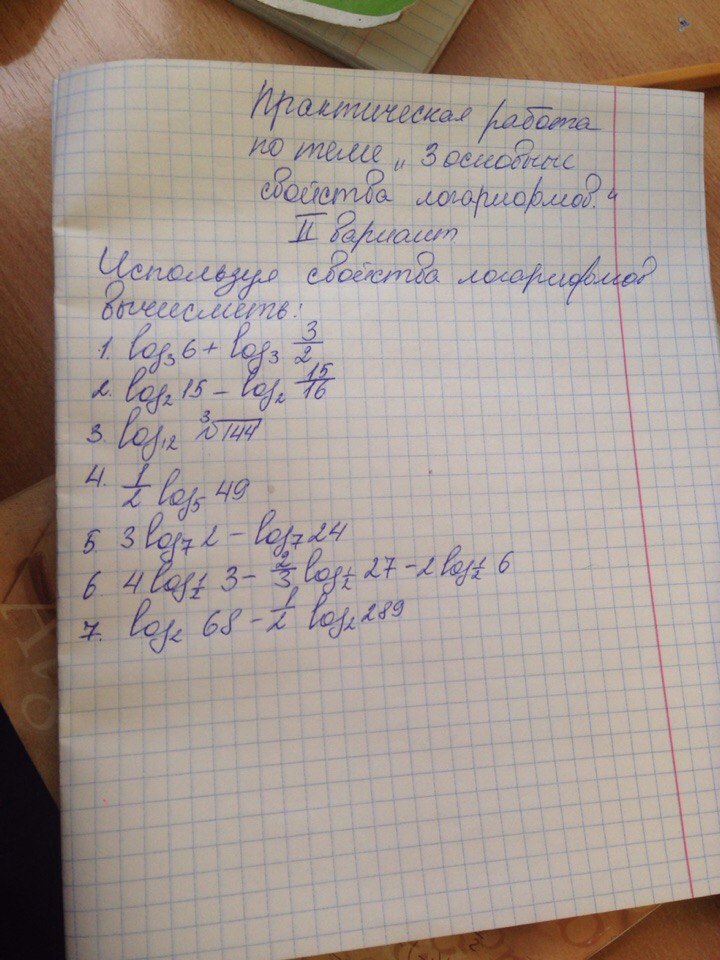 Практическая работа
по теме „ 3 основные
свойства логарифмов."
II вариант
Используя свойства логарифмов
вычислить:
1. log₃6 + log₃ 3/2
2. log₂15 – log₂ 15/16
3. log₁₂ ∛144
4. 1/2 log₅ 49
5. 3log₇2 – log₇24
6. 4log_{1/2} 3 – 2/3 log_{1/2} 27 – 2log_{1/2} 6
7. log₂ 68 – 1/2 log₂289